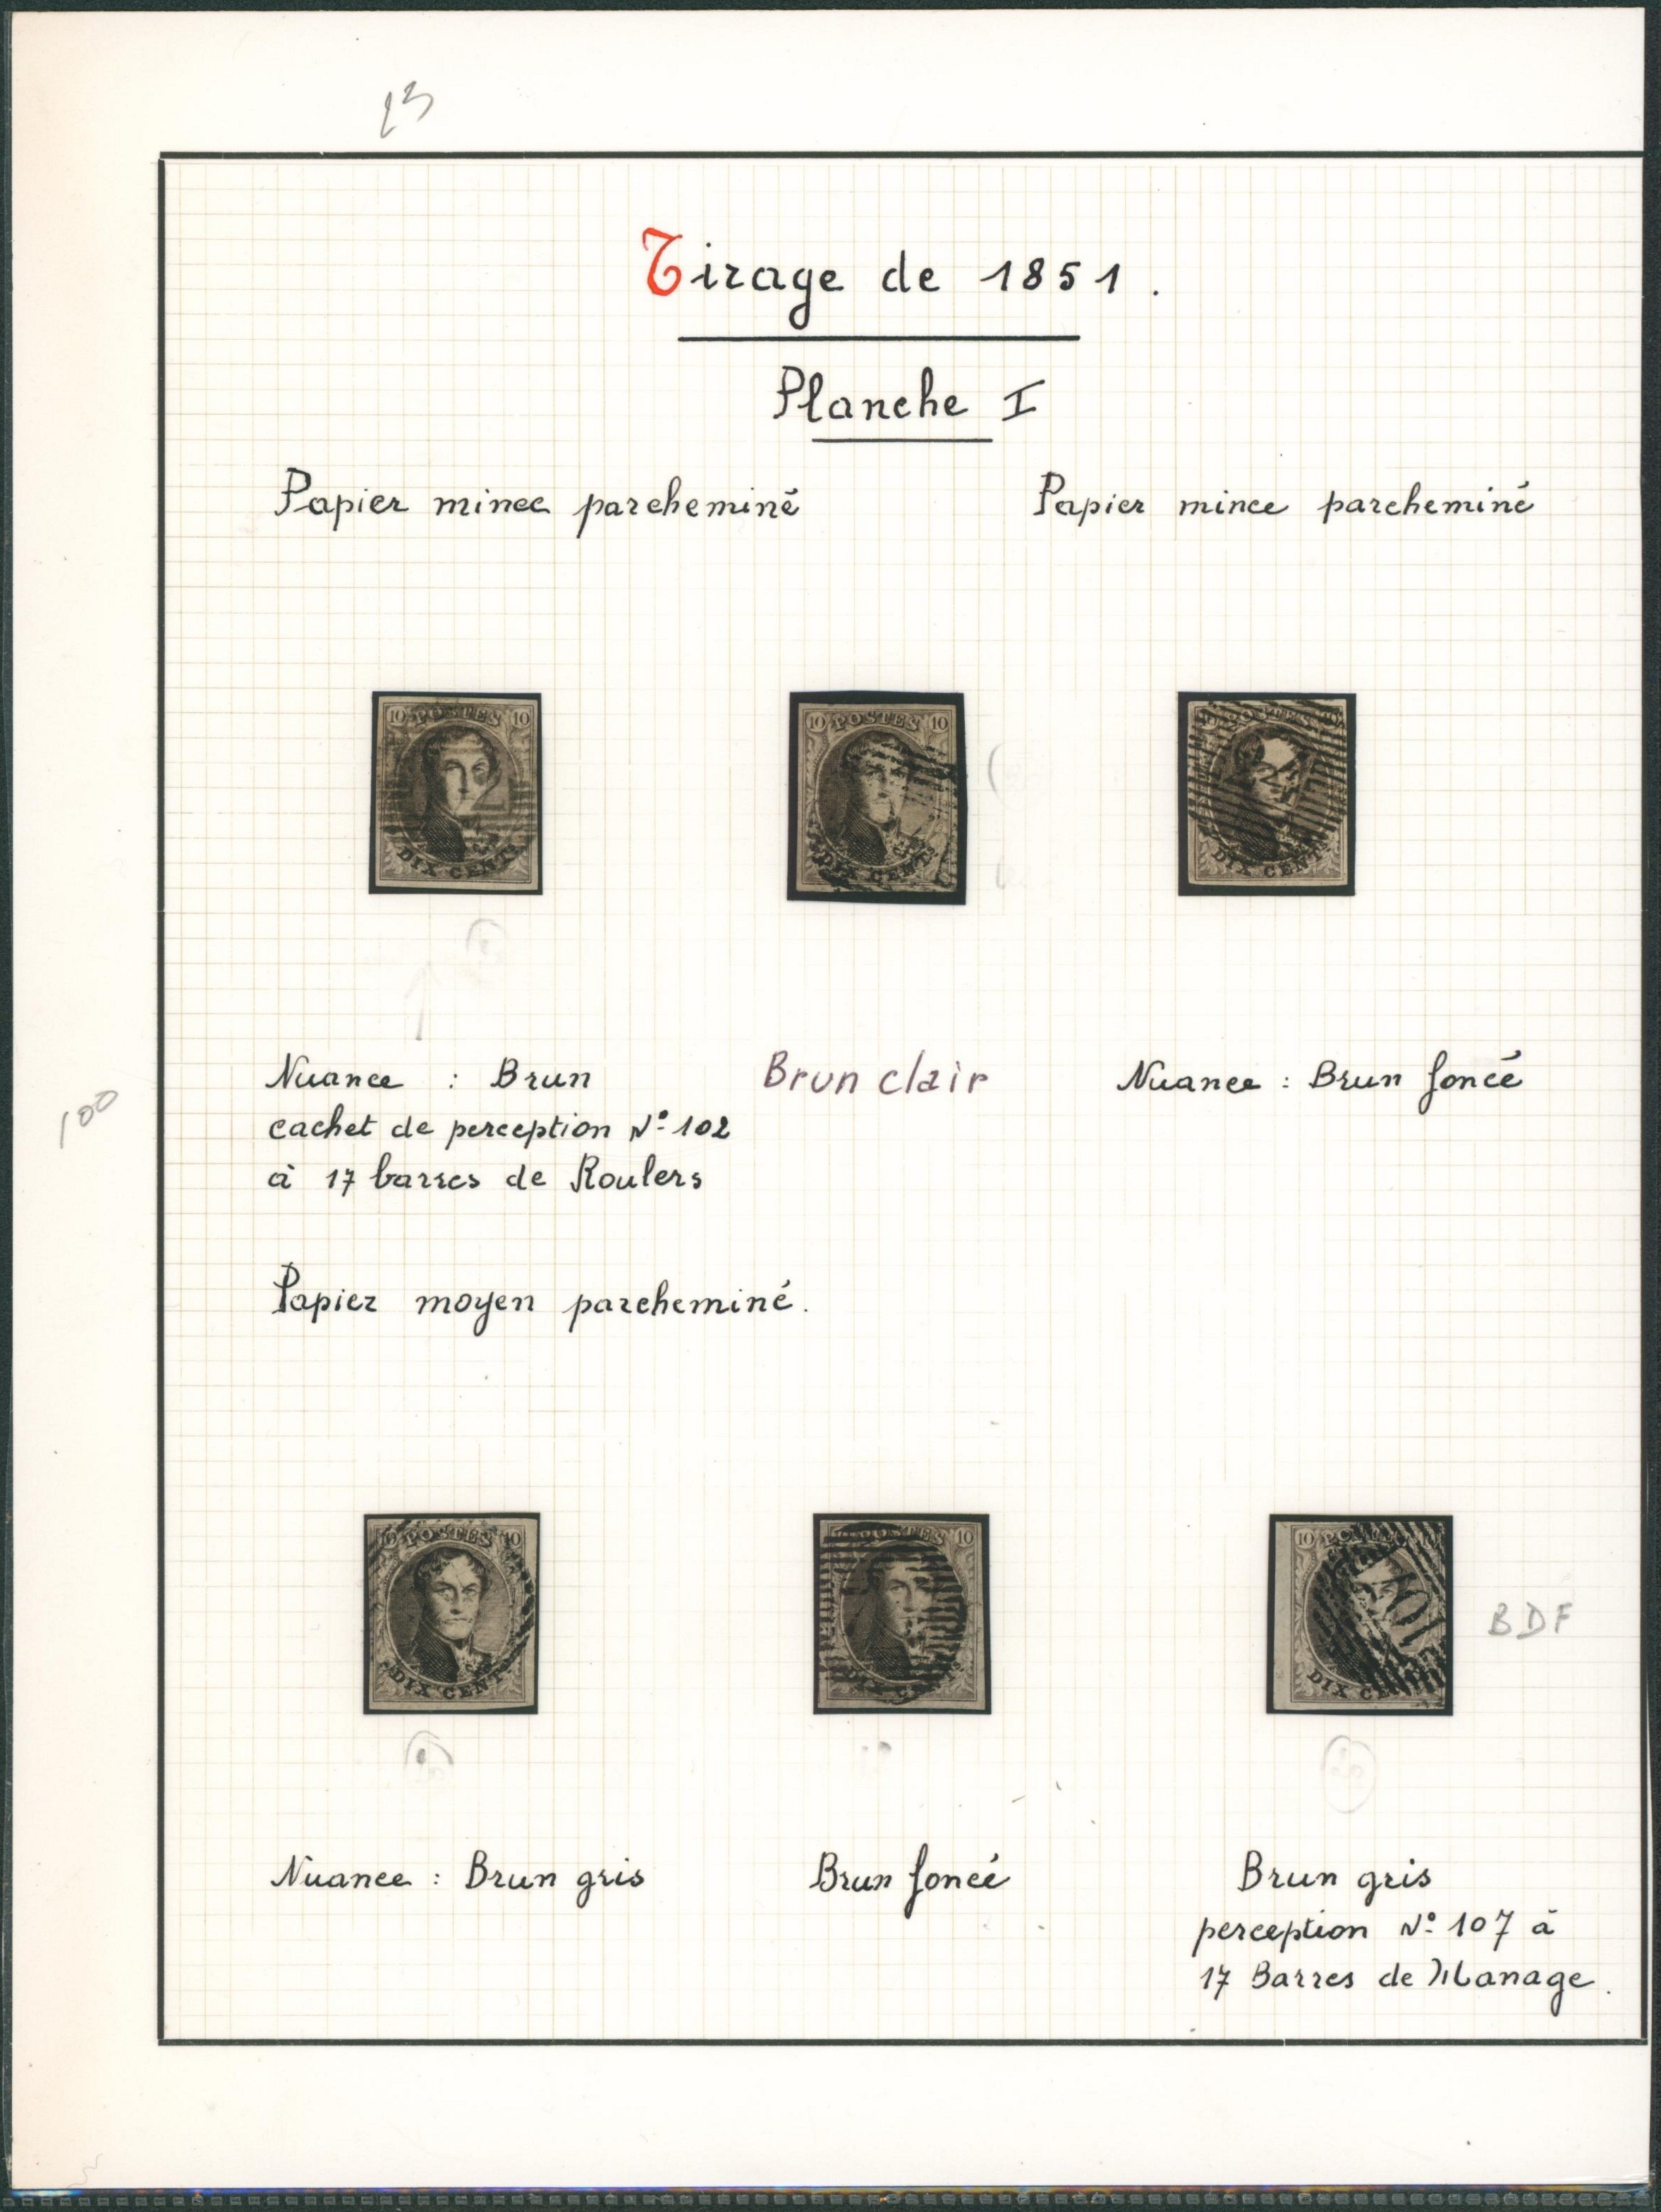 23
Tirage de 1851.
Planche I
Papier mince parcheminé
Papier mince parcheminé
10 POSTES 10
DIX CENTS
10 POSTES 10
DIX CENTS
10 POSTES 10
DIX CENTS
Nuance : Brun
cachet de perception N° 102
à 17 barres de Roulers
Brun clair
Nuance : Brun foncé
100
Papier moyen parcheminé.
10 POSTES 10
DIX CENTS
POSTES 10
10 POSTES
DIX CE
BDF
Nuance : Brun gris
Brun foncé
Brun gris
perception N° 107 à
17 Barres de Manage.